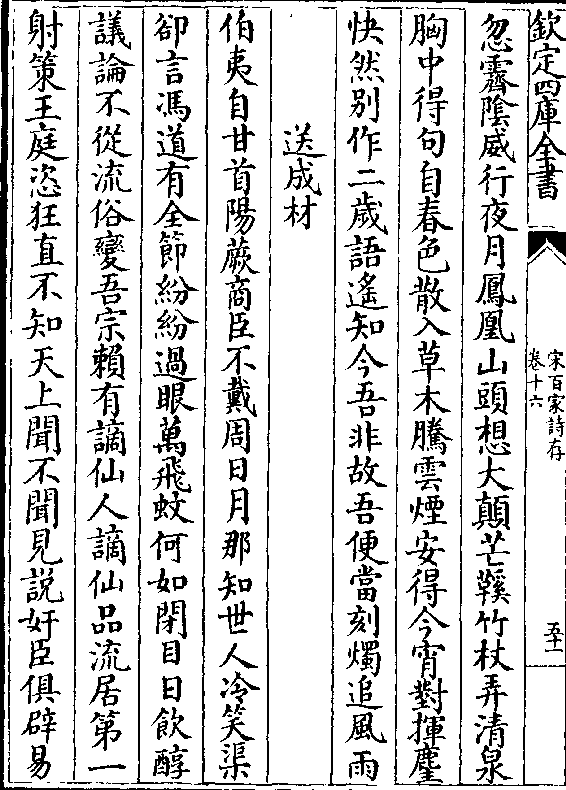 欽定四庫全書
宋百家詩存
卷十六
五十一
忽霽陰威行夜月鳳凰山頭想大顛芒鞵竹杖弄清泉
胸中得句自春色散入草木騰雲煙安得今宵對揮麈
快然別作二歲語遙知今吾非故吾便當刻燭追風雨
送成材
伯夷自甘首陽蕨商臣不戴周日月那知世人冷笑渠
卻言馮道有全節紛紛過眼萬飛蚊何如閉目日飲醇
議論不從流俗變吾宗賴有謫仙人謫仙品流居第一
射策王庭恣狂直不知天上聞不聞見説奸臣俱辟易